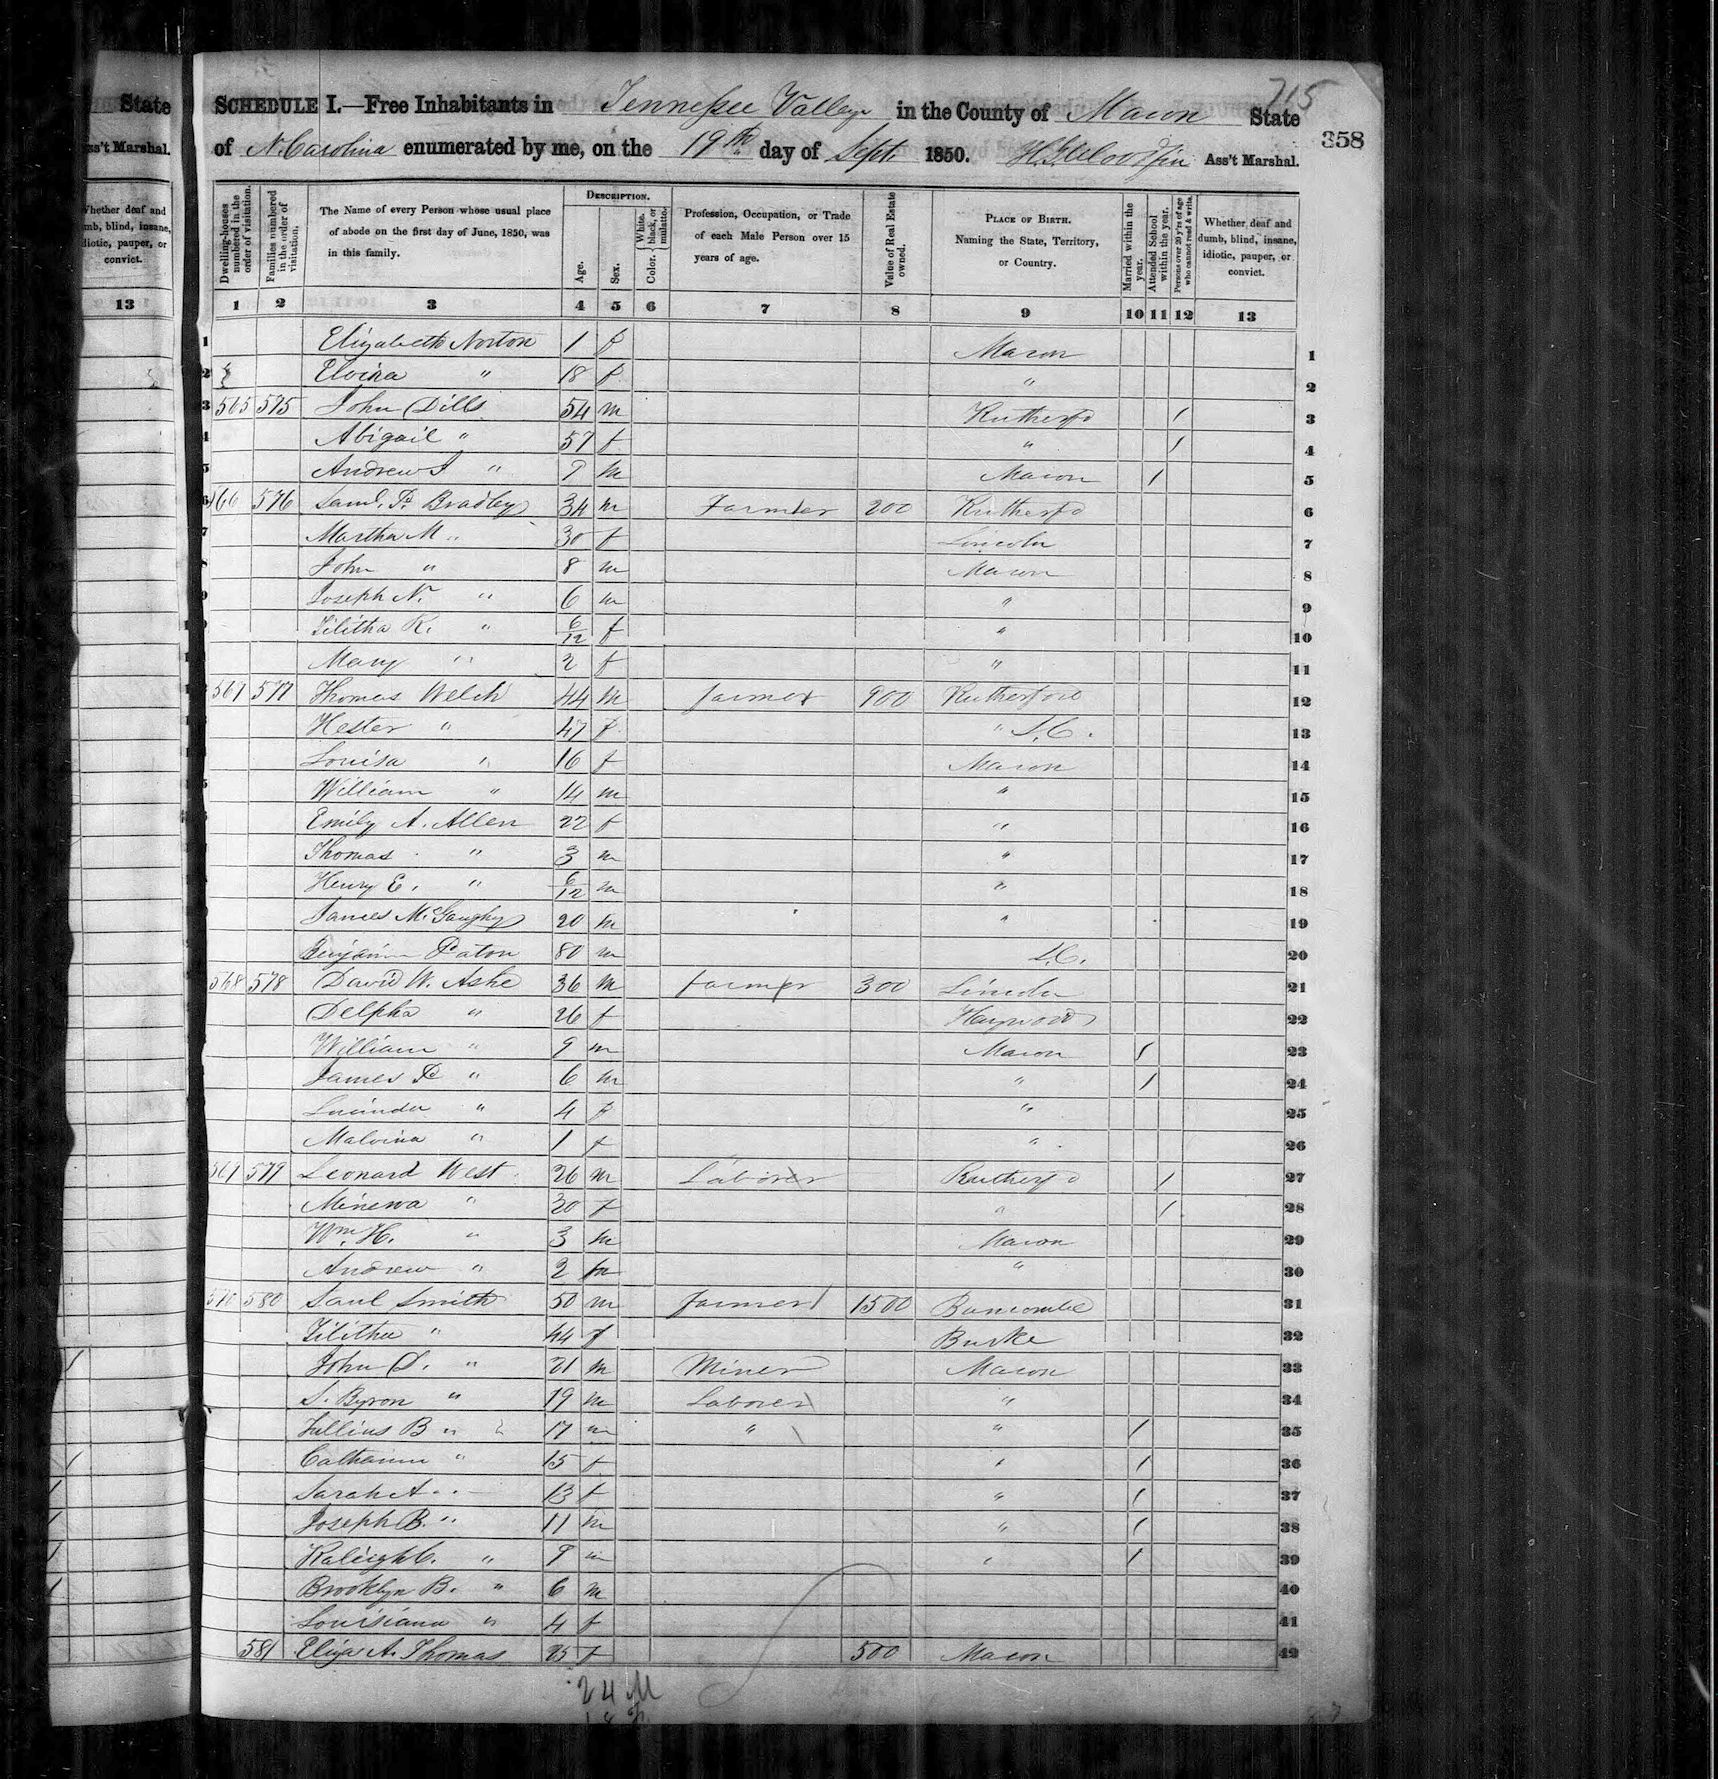 715
State
SCHEDULE I.—Free Inhabitants in Tennessee Valley in the County of Macon State
358
ss't Marshal.
of N. Carolina enumerated by me, on the 19th day of Sept. 1850. Ass't Marshal.
Whether deaf and dumb, blind, insane, idiotic, pauper, or convict.
Dwelling-houses numbered in the order of visitation.
Families numbered in the order of visitation.
The Name of every Person whose usual place of abode on the first day of June, 1850, was in this family.
DESCRIPTION.
Age.
Sex.
Color. White, black, or mulatto.
Profession, Occupation, or Trade of each Male Person over 15 years of age.
Value of Real Estate owned.
PLACE OF BIRTH. Naming the State, Territory, or Country.
Married within the year.
Attended School within the year.
Persons over 20 y'rs of age who cannot read & write.
Whether deaf and dumb, blind, insane, idiotic, pauper, or convict.
13 1 2 3 4 5 6 7 8 9 10 11 12 13
1 Elizabeth Norton 1 f Macon 1
2 Elvira " 18 f " 2
3 565 575 John Dills 54 m Rutherfd / 3
4 Abigail " 57 f " / 4
5 Andrew J " 9 m Macon / 5
6 566 576 Saml. P. Bradley 34 m Farmer 200 Rutherfd 6
7 Martha M " 30 f Lincoln 7
8 John " 8 m Macon 8
9 Joseph N. " 6 m " 9
Tilitha K. " 6/12 f " 10
Mary " 2 f " 11
567 577 Thomas Welch 44 m farmer 900 Rutherford 12
Hester " 47 f " S.C. 13
Louisa " 16 f Macon 14
William " 14 m " 15
Emily A. Allen 22 f " 16
Thomas " 3 m " 17
Henry E. " 6/12 m " 18
James McGaughy 20 m " 19
Benjamin Paton 80 m S.C. 20
568 578 David W. Ashe 36 m farmer 300 Lincoln 21
Delpha " 26 f Haywood 22
William " 9 m Macon / 23
James P " 6 m " / 24
Lucinda " 4 f " 25
Malvina " 1 f " 26
579 Leonard West 26 m Laborer Rutherfd / 27
Minerva " 30 f " / 28
Wm. H. " 3 m Macon 29
Andrew " 2 m " 30
570 580 Saul Smith 50 m farmer 1500 Buncombe 31
Tilitha " 44 f Burke 32
John D. " 21 m Miner Macon 33
S. Byron " 19 m Laborer " 34
Jullius B " 17 m " " / 35
Catharine " 15 f " / 36
Sarah A " 13 f " / 37
Joseph B. " 11 m " / 38
Raleigh C. " 9 m " / 39
Brooklyn B. " 6 m 40
Louisiana " 4 f 41
581 Eliza A. Thomas 25 f 500 Macon 42
24 M
18 F